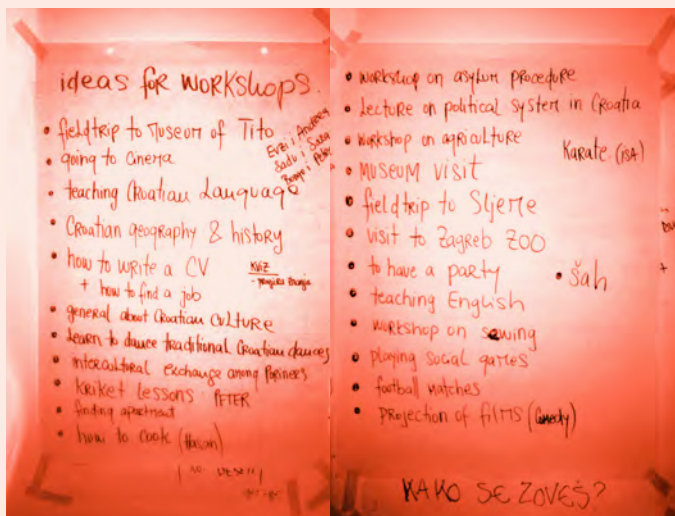 ideas for WORKSHOPS.
• fieldtrip to Museum of Tito
• going to cinema
• teaching Croatian Language
• Croatian geography & history
• how to write a CV
+ how to find a job
KVIZ
• general about Croatian CULTURE
• Learn to dance traditional Croatian dances
• intercultural exchange among
• KRIKET LESSONS PETER
• finding apartment
• how to cook (Hasan)
• WORKSHOP on asylum procedure
• Lecture on political system in Croatia
• workshop on agriculture
KARATE (ISA)
• MUSEUM VISIT
• fieldtrip to Sljeme
• visit to Zagreb ZOO
• to have a party
• Šah
• teaching English
• workshop on sewing
• playing social games
• football matches
• PROJECTION OF FILMS (Comedy)
KAKO SE ZOVEŠ?